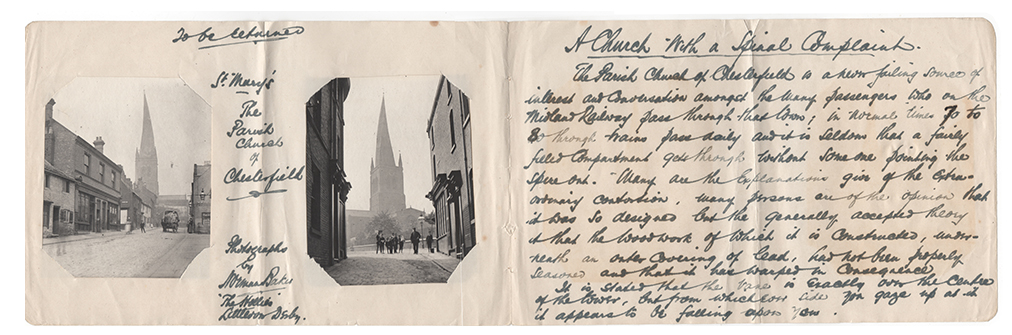 To be returned
St Mary's
The
Parish
Church
of
Chesterfield
Photographs
by
Norman Baker
"The Hollies"
Littleover Derby.
A Church With a Spinal Complaint.
The Parish Church of Chesterfield is a never failing source of
interest and conversation amongst the many passengers who on the
Midland Railway pass through that town; in normal times 70 to
80 through trains pass daily and it is seldom that a fairly
filled compartment gets through without someone pointing the
spire out. Many are the explanations given of the extra-
ordinary contortion, many persons are of the opinion that
it was so designed but the generally accepted theory
is that the woodwork of which it is constructed, under-
neath an outer covering of lead, had not been properly
seasoned and that it has warped in consequence.
It is stated that the vane is exactly over the centre
of the tower, but from whichever side you gaze up at it
it appears to be falling upon you.